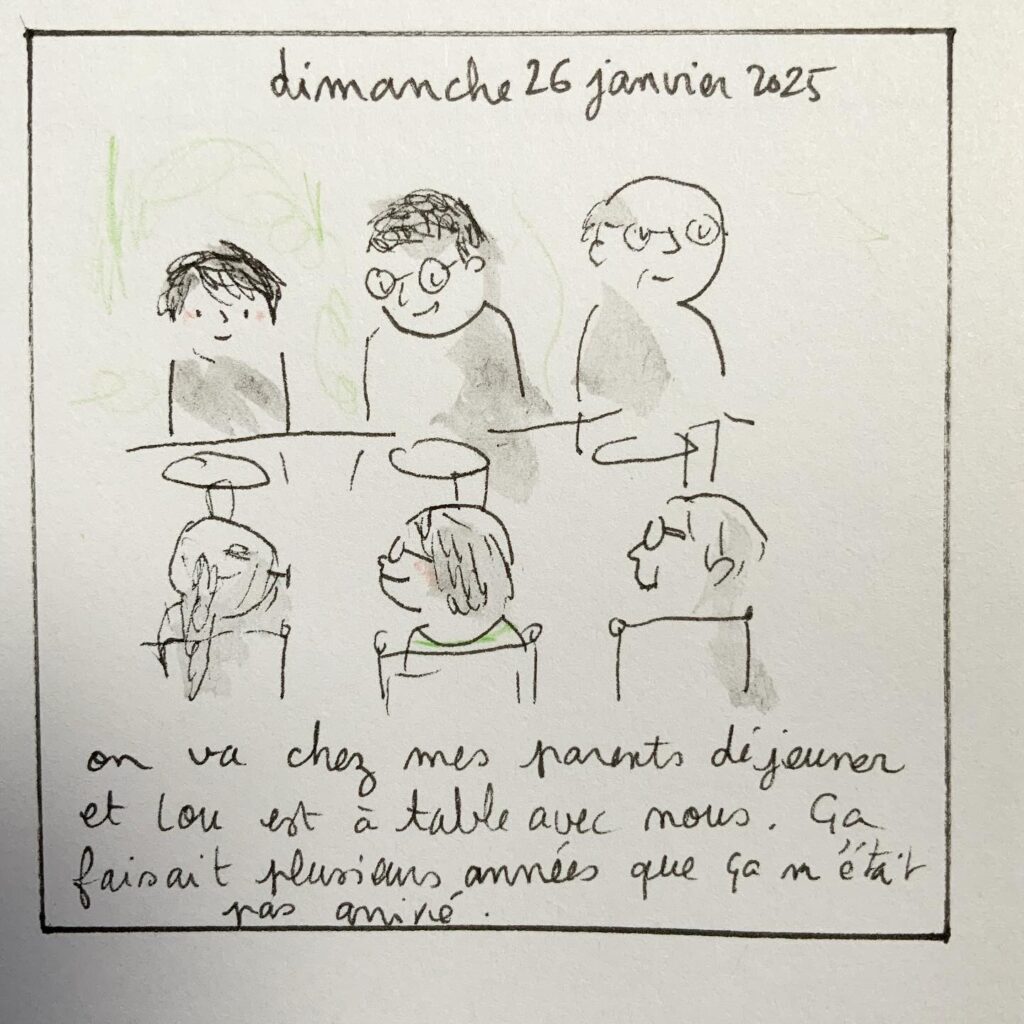 dimanche 26 janvier 2025
on va chez mes parents déjeuner
et Lou est à table avec nous. Ça
faisait plusieurs années que ça n'était
pas arrivé.